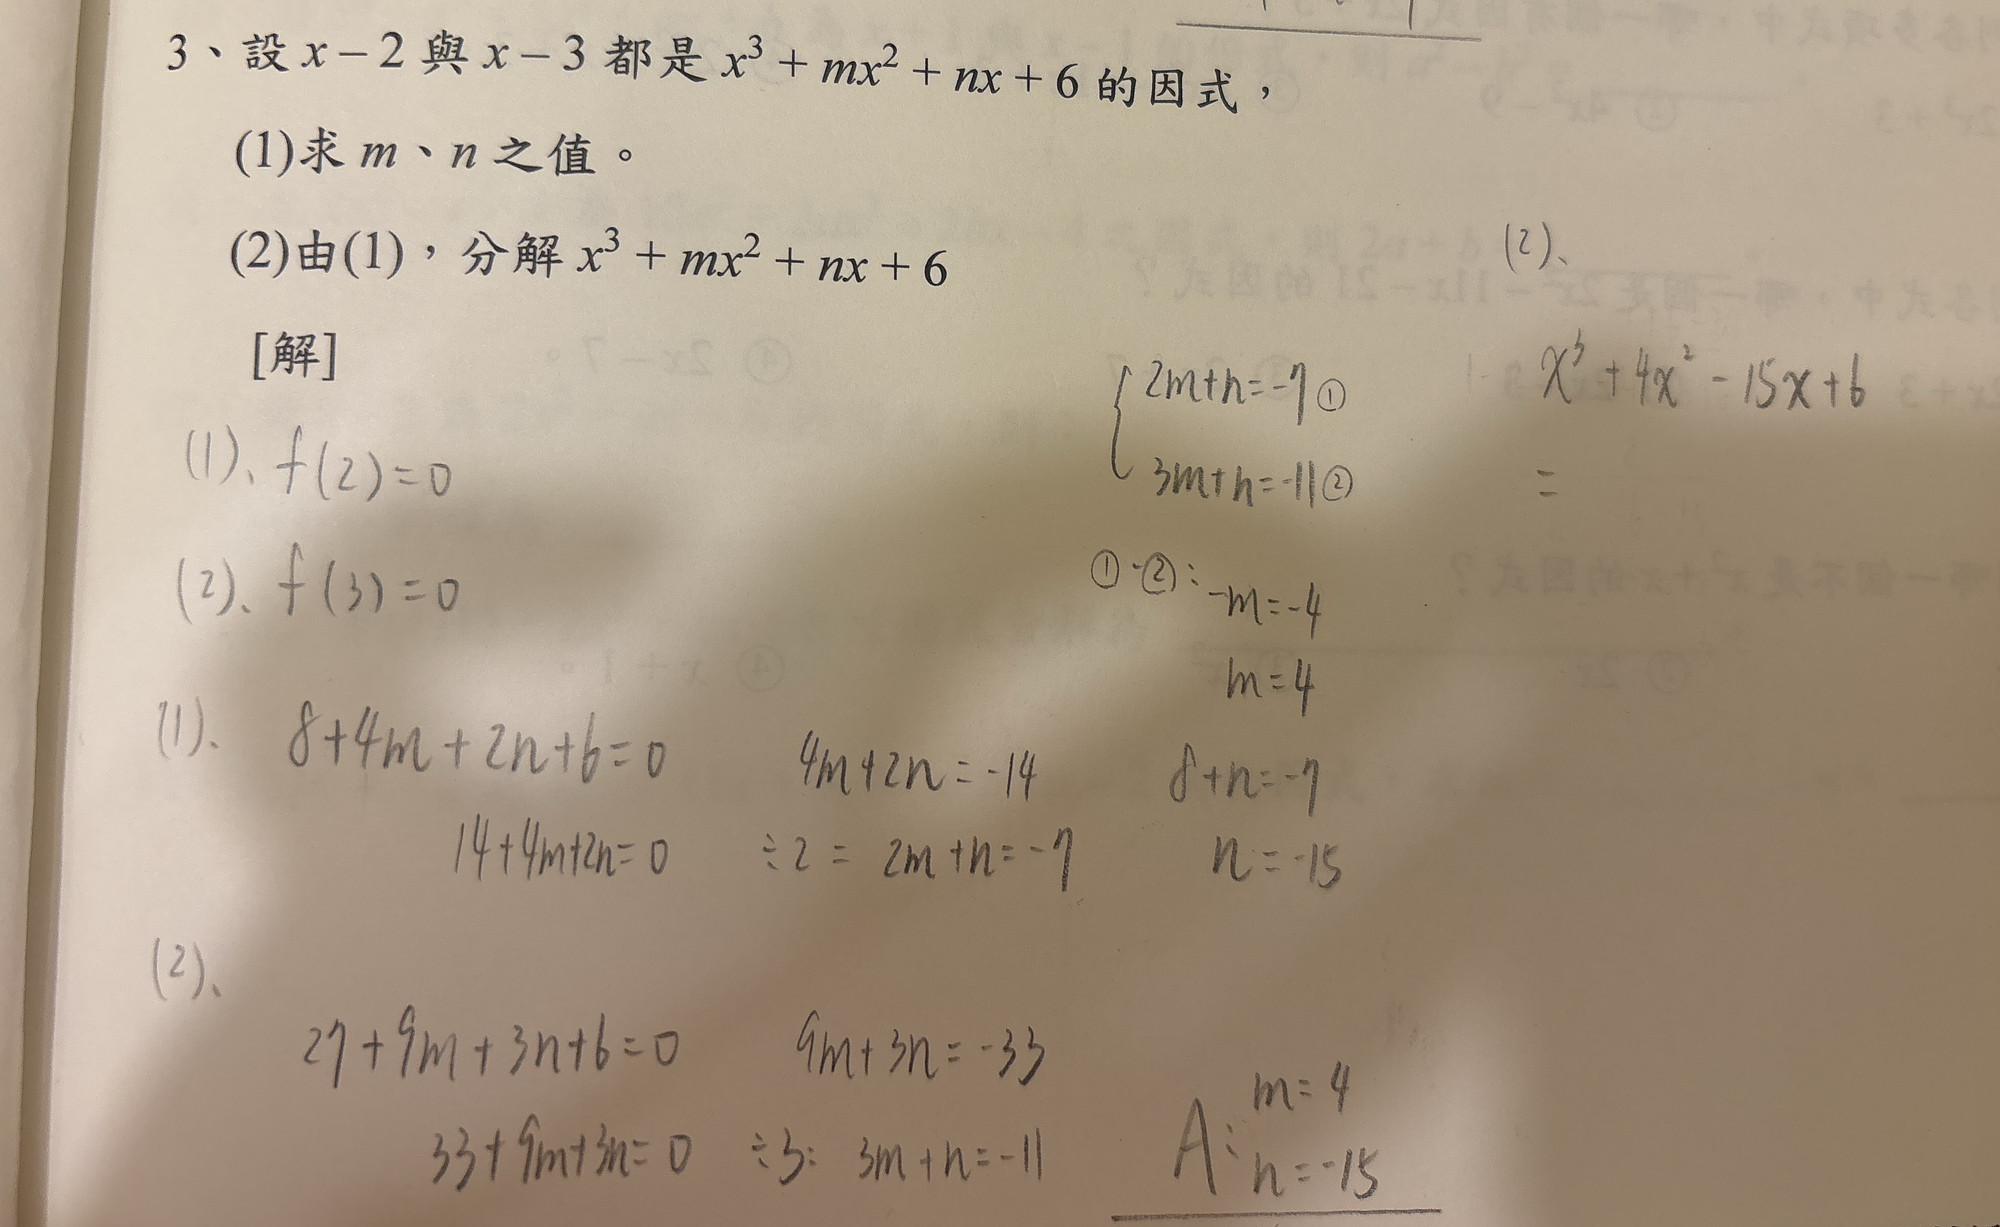 3、設 x − 2 與 x − 3 都是 x³ + mx² + nx + 6 的因式，
(1)求 m、n 之值。
(2)由(1)，分解 x³ + mx² + nx + 6
[解]
(1)、f(2)=0
(2)、f(3)=0
(1)、8+4m+2n+6=0
14+4m+2n=0
4m+2n=-14
÷2= 2m+n=-7
(2)、
27+9m+3n+6=0
33+9m+3n=0
9m+3n=-33
÷3: 3m+n=-11
{2m+n=-7①
3m+n=-11②
①-②:
-m=-4
m=4
8+n=-7
n=-15
A: m=4
n=-15
(2)、
x³+4x²-15x+6
=